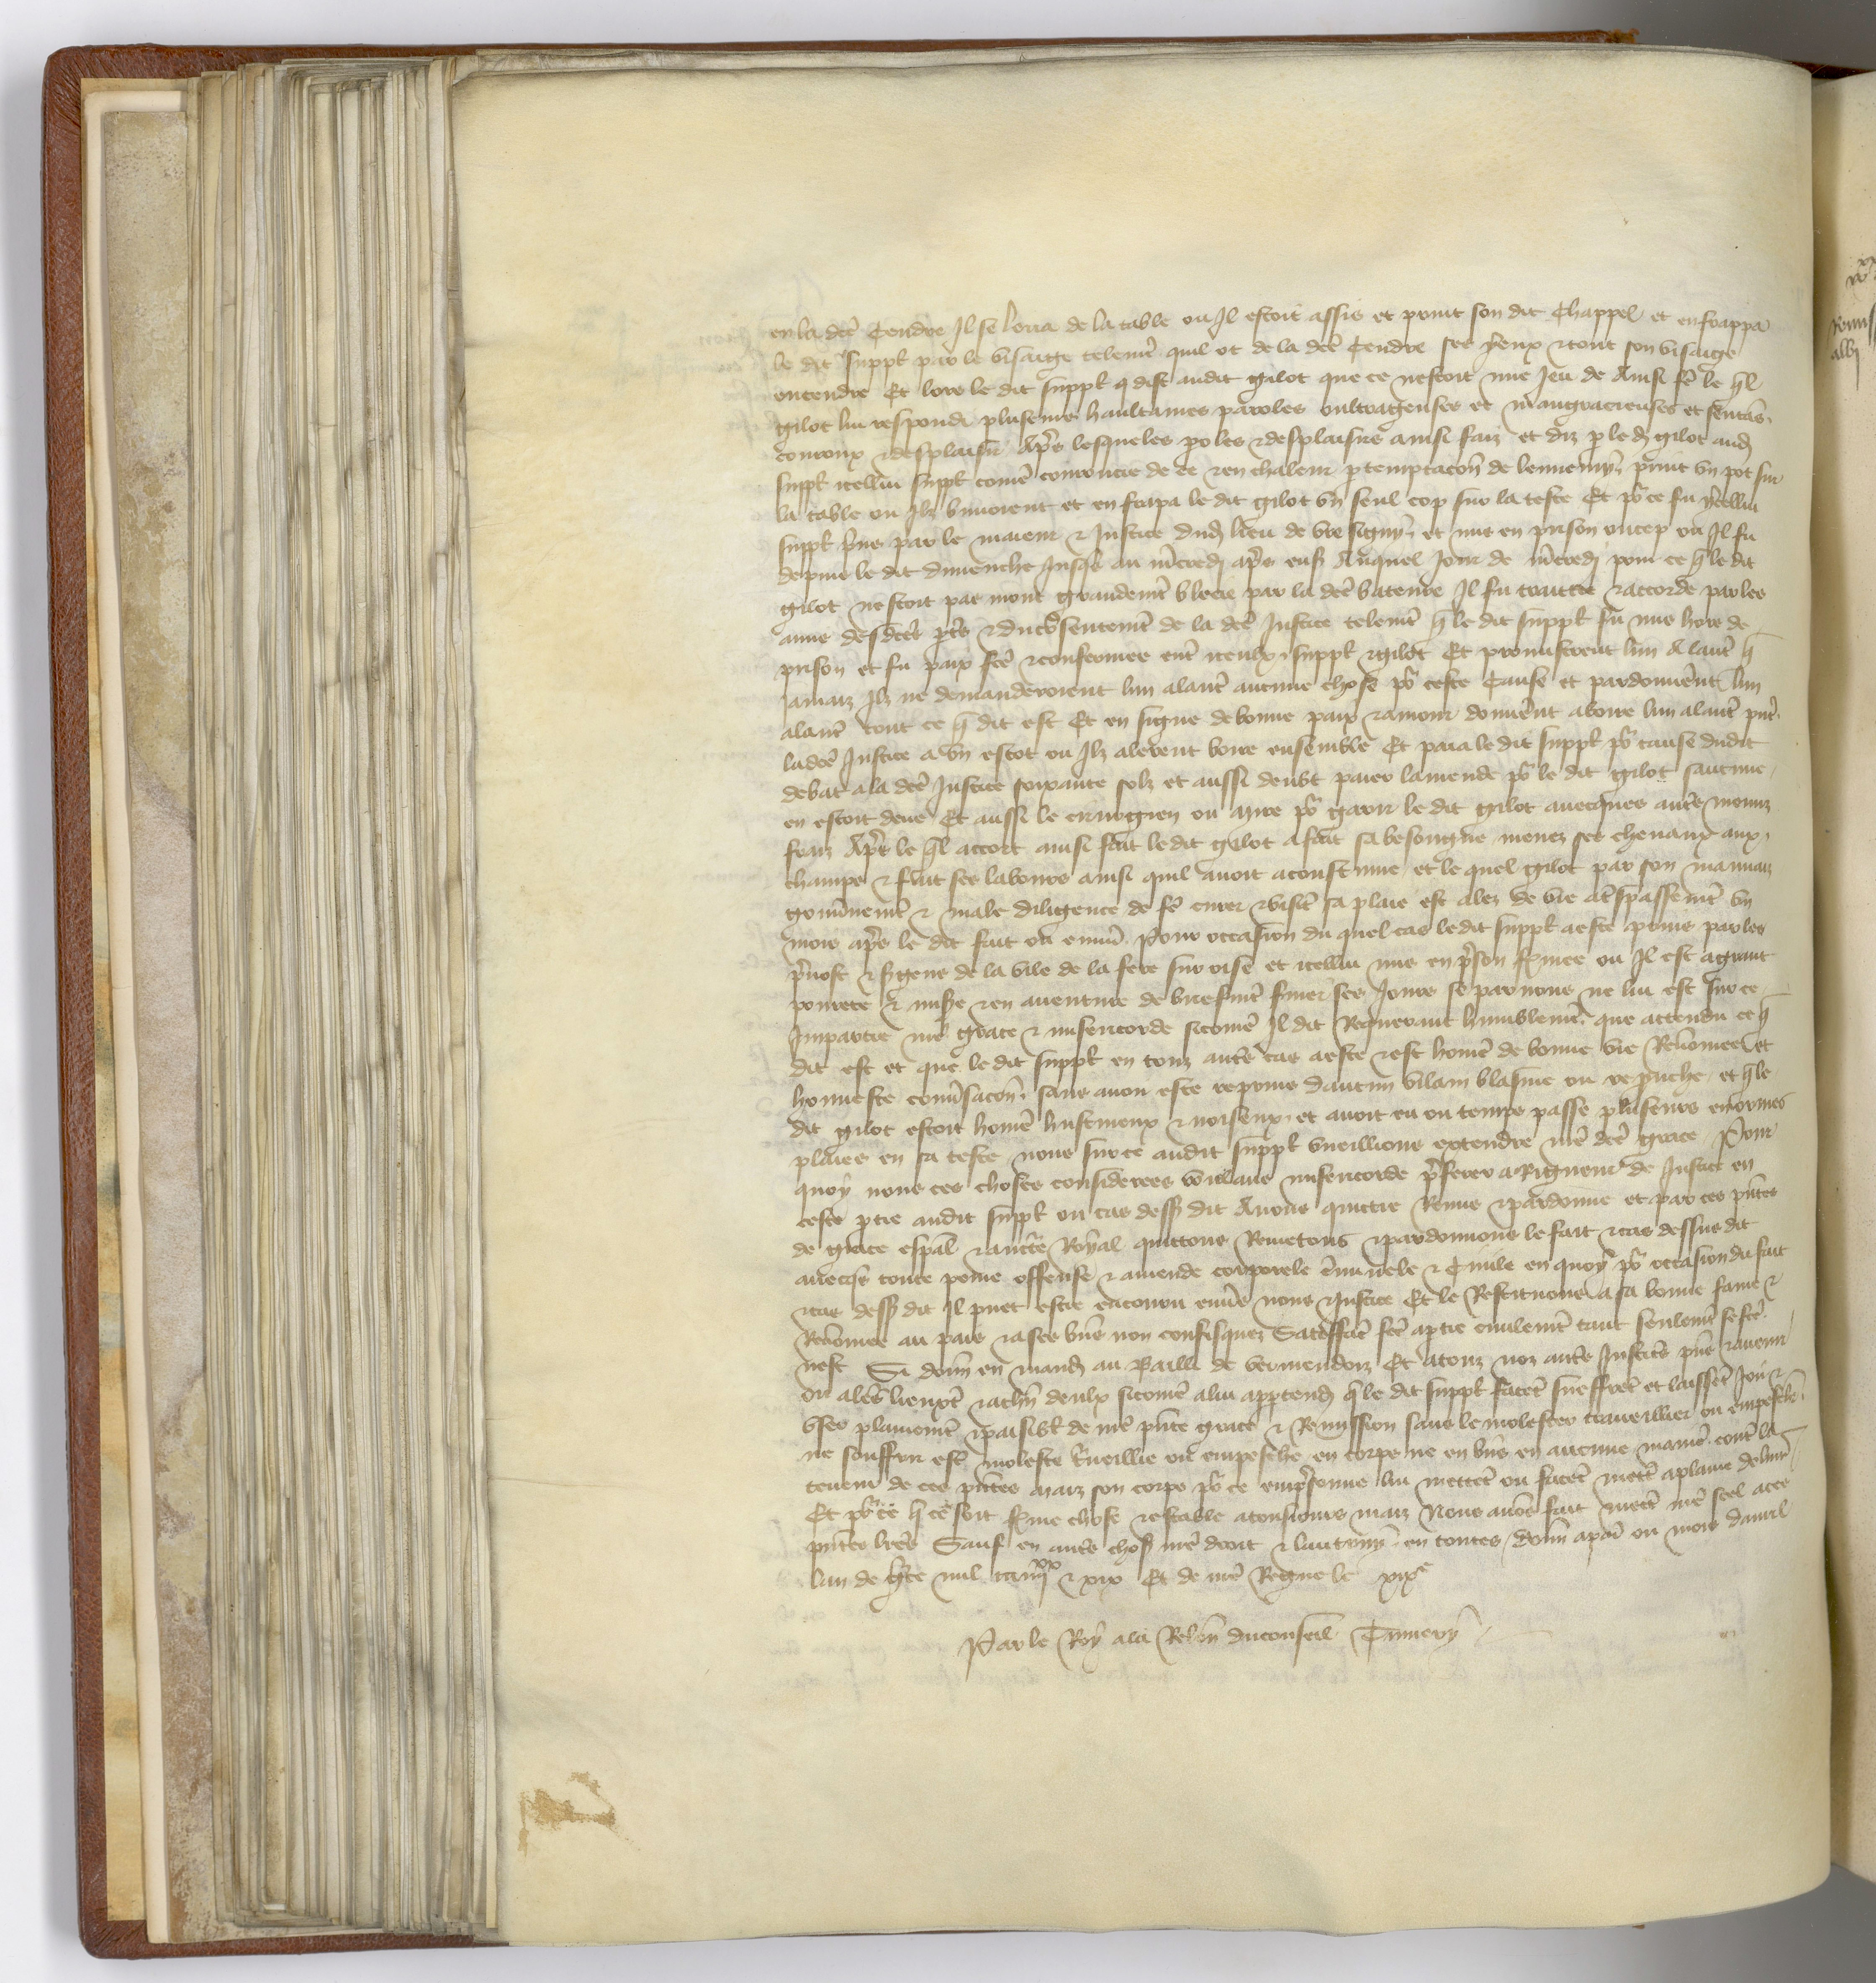 en la dce Cendre Il se leva de la table ou Il estoit assis et prinst son dit Chappel et en frappa
le dit suppl par le visaige telemt quil ot de la dce Cendre ses yeux & tout son visaige
encendre Et lors le dit suppl dist audit gilot que ce nestoit mie Jeu de Ainsi fe le ql
gilot lui respondi pluseurs haultaines paroles oultrageuses et malgracieuses et
courroux & desplaisir Apres lesqueles proles & desplaisirs ainsi faiz et diz p le d gilot aud
suppl icellui suppl come courroucie de ce & en chaleur p temptacon de lennemy print un pot sur
la table ou Ilz buvoient et en frapa le dit gilot un seul cop sur la teste Et po ce fu ycellui
suppl prins par le maieur & Justice dud lieu de et mis en prison ou cep ou Il fu
depuis le dit dimenche Jusqs au mcredi apres ens Auquel Jour de mcredi pour ce q le dit
gilot nestoit pas mont grandemt blecie par la dce bateure Il fu traittie & accorde par les
amis desdces pties & du csentemt de la dce Justice telemt q le dit suppl fu mis hors de
prison et fu paix fce & confermee ent iceulx suppl & gilot Et promistrent lun A laut q
Jamaiz Ilz ne demanderoient lun a laut aucune chose po ceste Cause et pardonnerent lun
a laut tout ce q dit est Et en signe de bonne paix & amour donnerent a boire lun a laut pnt
la dce Justice a un escot ou Ilz alerent boire ensemble Et paia le dit suppl po cause dudit
debat a la dce Justice soixante solz et aussi deubt paier lamende po le dit gilot saucune
en estoit deue Et aussi le cirurgien ou mire po garir le dit gilot avecques autres menuz
fraiz Apres le ql accort ainsi fait le dit gilot a fait sa besongne menez ses chevaux aux
champs & fait ses labours ainsi quil avoit acoustume et le quel gilot par son mauvaiz
gouvnemt & male diligence de fe curer & visit sa plaie est alez de vie a tspassemt un
mois apres le dit fait ou environ Pour occasion du quel cas le dit suppl a este prins par les
prevost & Jugeurs de la vile de la fere sur oise et icellui mis en prison fermee ou Il est a grant
povrete & misere & en aventure de briefmt finer ses Jours se par nous ne lui est sur ce
Impartie nre grace & misericorde sicome Il dit Requerant humblemt que attendu ce q
dit est et que le dit suppl en touz autres cas a este & est home de bonne vie Renomee et
honneste convsacon sans avoir este reprins daucun vilain blasme ou reprouche et q le
dit gilot estoit home hustineux & noiseux et avoit eu ou temps passe pluseurs enormes
plaies en sa teste nous sur ce audit suppl vueillions extendre nre dce grace Pour
quoy nous ces choses considerees voulans misericorde preferer a Rigueur de Justice en
ceste ptie audit suppl ou cas dess dit Avons quittie Remis & pardonne et par ces pntes
de grace espal & aucte Royal quittons Remetons & pardonnons le fait & cas dessus dit
avecqs toute peine offense & amende corporele criminele & Civile en quoy po occasion du fait
& cas dess dit Il puet estre encouru envers nous & Justice Et le Restituons a sa bonne fame &
Renomee au pais & a ses biens non confisquez Satisfact fce a ptie civilemt tant seulemt se fce
nest Si donn en mand au Bailli de Vermendoiz Et a touz noz autres Justices pns & avenir
ou a leurs lieuxt & a chun deulx sicome a lui apptend q le dit suppl facet sueffret et laisset Joir &
user plainemt & paisiblt de nre pnte grace & Remission sans le molester traveillier ou empeschr
ne souffrir est moleste traveillie ou empeschie en corps ne en biens en aucune maniere cont la
teneur de ces pntes maiz son corps po ce emprisonne lui mettet ou facet mett a plaine deliver
Et po ce q ce soit ferme chose & estable a tousiours maiz Nous avons fait mett nre seel a ces
pntes lres Sauf en autres chos nre droit & lautruy en toutes Donn a paris ou mois davril
lan de grace mil ccc iiiixx & xix Et de nre Regne le xixe
Par le Roy a la Relon du conseil